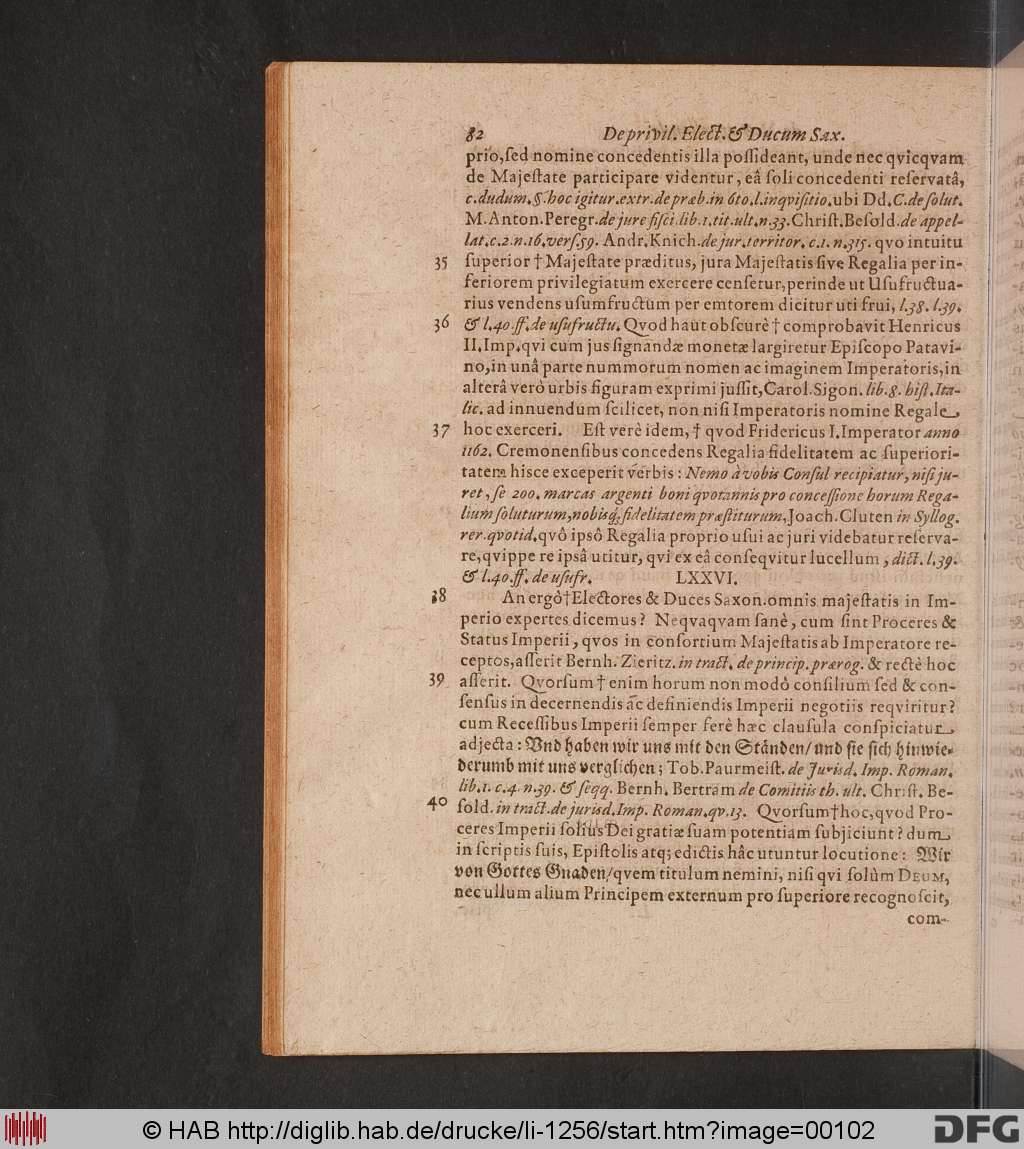 82 De privil. Elect. & Ducum Sax.
prio, sed nomine concedentis illa possideant, unde nec qvicqvam
de Majestate participare videntur, eâ soli concedenti reservatâ,
c. dudum. §. hoc igitur. extr. de præb. in 6to. l. inqvisitio. ubi Dd. C. de solut.
M. Anton. Peregr. de jure fisci. lib. 1. tit. ult. n. 33. Christ. Besold. de appel-
lat. c. 2. n. 16. vers. 59. Andr. Knich. de jur. territor. c. 1. n. 315. qvo intuitu
35 superior † Majestate præditus, jura Majestatis sive Regalia per in-
feriorem privilegiatum exercere censetur, perinde ut Usufructua-
rius vendens usumfructum per emtorem dicitur uti frui, l. 38. l. 39.
36 & l. 40. ff. de usufructu. Qvod haut obscurè † comprobavit Henricus
II. Imp. qvi cum jus signandæ monetæ largiretur Episcopo Patavi-
no, in unâ parte nummorum nomen ac imaginem Imperatoris, in
alterâ verò urbis figuram exprimi jussit, Carol. Sigon. lib. 8. hist. Ita-
lic. ad innuendum scilicet, non nisi Imperatoris nomine Regale
37 hoc exerceri. Est verè idem, † qvod Fridericus I. Imperator anno
1162. Cremonensibus concedens Regalia fidelitatem ac superiori-
tatem hisce exceperit verbis: Nemo à vobis Consul recipiatur, nisi ju-
ret, se 200. marcas argenti boni qvotannis pro concessione horum Rega-
lium soluturum, nobisq; fidelitatem præstiturum, Joach. Cluten in Syllog.
rer. qvotid. qvô ipsô Regalia proprio usui ac juri videbatur reserva-
re, qvippe re ipsâ utitur, qvi ex eâ conseqvitur lucellum, dict. l. 39.
& l. 40. ff. de usufr. LXXVI.
38 An ergô † Electores & Duces Saxon. omnis majestatis in Im-
perio expertes dicemus? Neqvaqvam sanè, cum sint Proceres &
Status Imperii, qvos in consortium Majestatis ab Imperatore re-
ceptos, asserit Bernh. Zieritz. in tract. de princip. prærog. & rectè hoc
39 asserit. Qvorsum † enim horum non modô consilium sed & con-
sensus in decernendis ac definiendis Imperii negotiis reqviritur?
cum Recessibus Imperii semper ferè hæc clausula conspiciatur
adjecta: Vnd haben wir uns mit den Ständen/ und sie sich hinwie-
derumb mit uns verglichen; Tob. Paurmeist. de Jurisd. Imp. Roman.
lib. 1. c. 4. n. 39. & seqq. Bernh. Bertram de Comitiis th. ult. Christ. Be-
40 sold. in tract. de jurisd. Imp. Roman. qv. 13. Qvorsum † hoc, qvod Pro-
ceres Imperii solius Dei gratiæ suam potentiam subjiciunt? dum
in scriptis suis, Epistolis atq; edictis hâc utuntur locutione: Wir
von Gottes Gnaden/ qvem titulum nemini, nisi qvi solùm DEUM,
nec ullum alium Principem externum pro superiore recognoscit,
com-
© HAB http://diglib.hab.de/drucke/li-1256/start.htm?image=00102
DFG